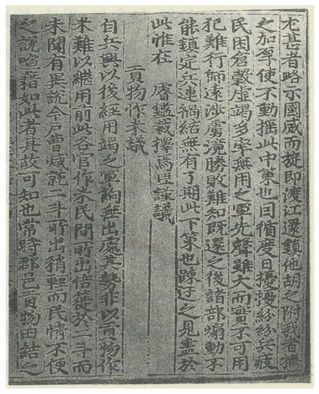 尤甚者略示國威而旋即渡江還鎮他胡之附我者撫
之加厚使不動搖此中策也因循度日擾擾紛紛兵疲
民困倉縠虛竭多率無用之軍先聲雖大而實不可用
犯難行師遠涉虜境勝敗難知旣還之後諸部煽動不
能鎮定兵連禍結無有了期此下策也踈迂之見盡於
此惟在 睿鑑裁擇焉臣謹議
貢物作米議
自兵興以後經用竭乏軍餉無出處其勢非以貢物作
米難以繼用前此各官作米民間所出倍蓰於二斗而
未聞有異說今戶曹減就二斗所出稍輕而民情不便
之說喧藉如此者其故可知也常時郡邑貢物田結之